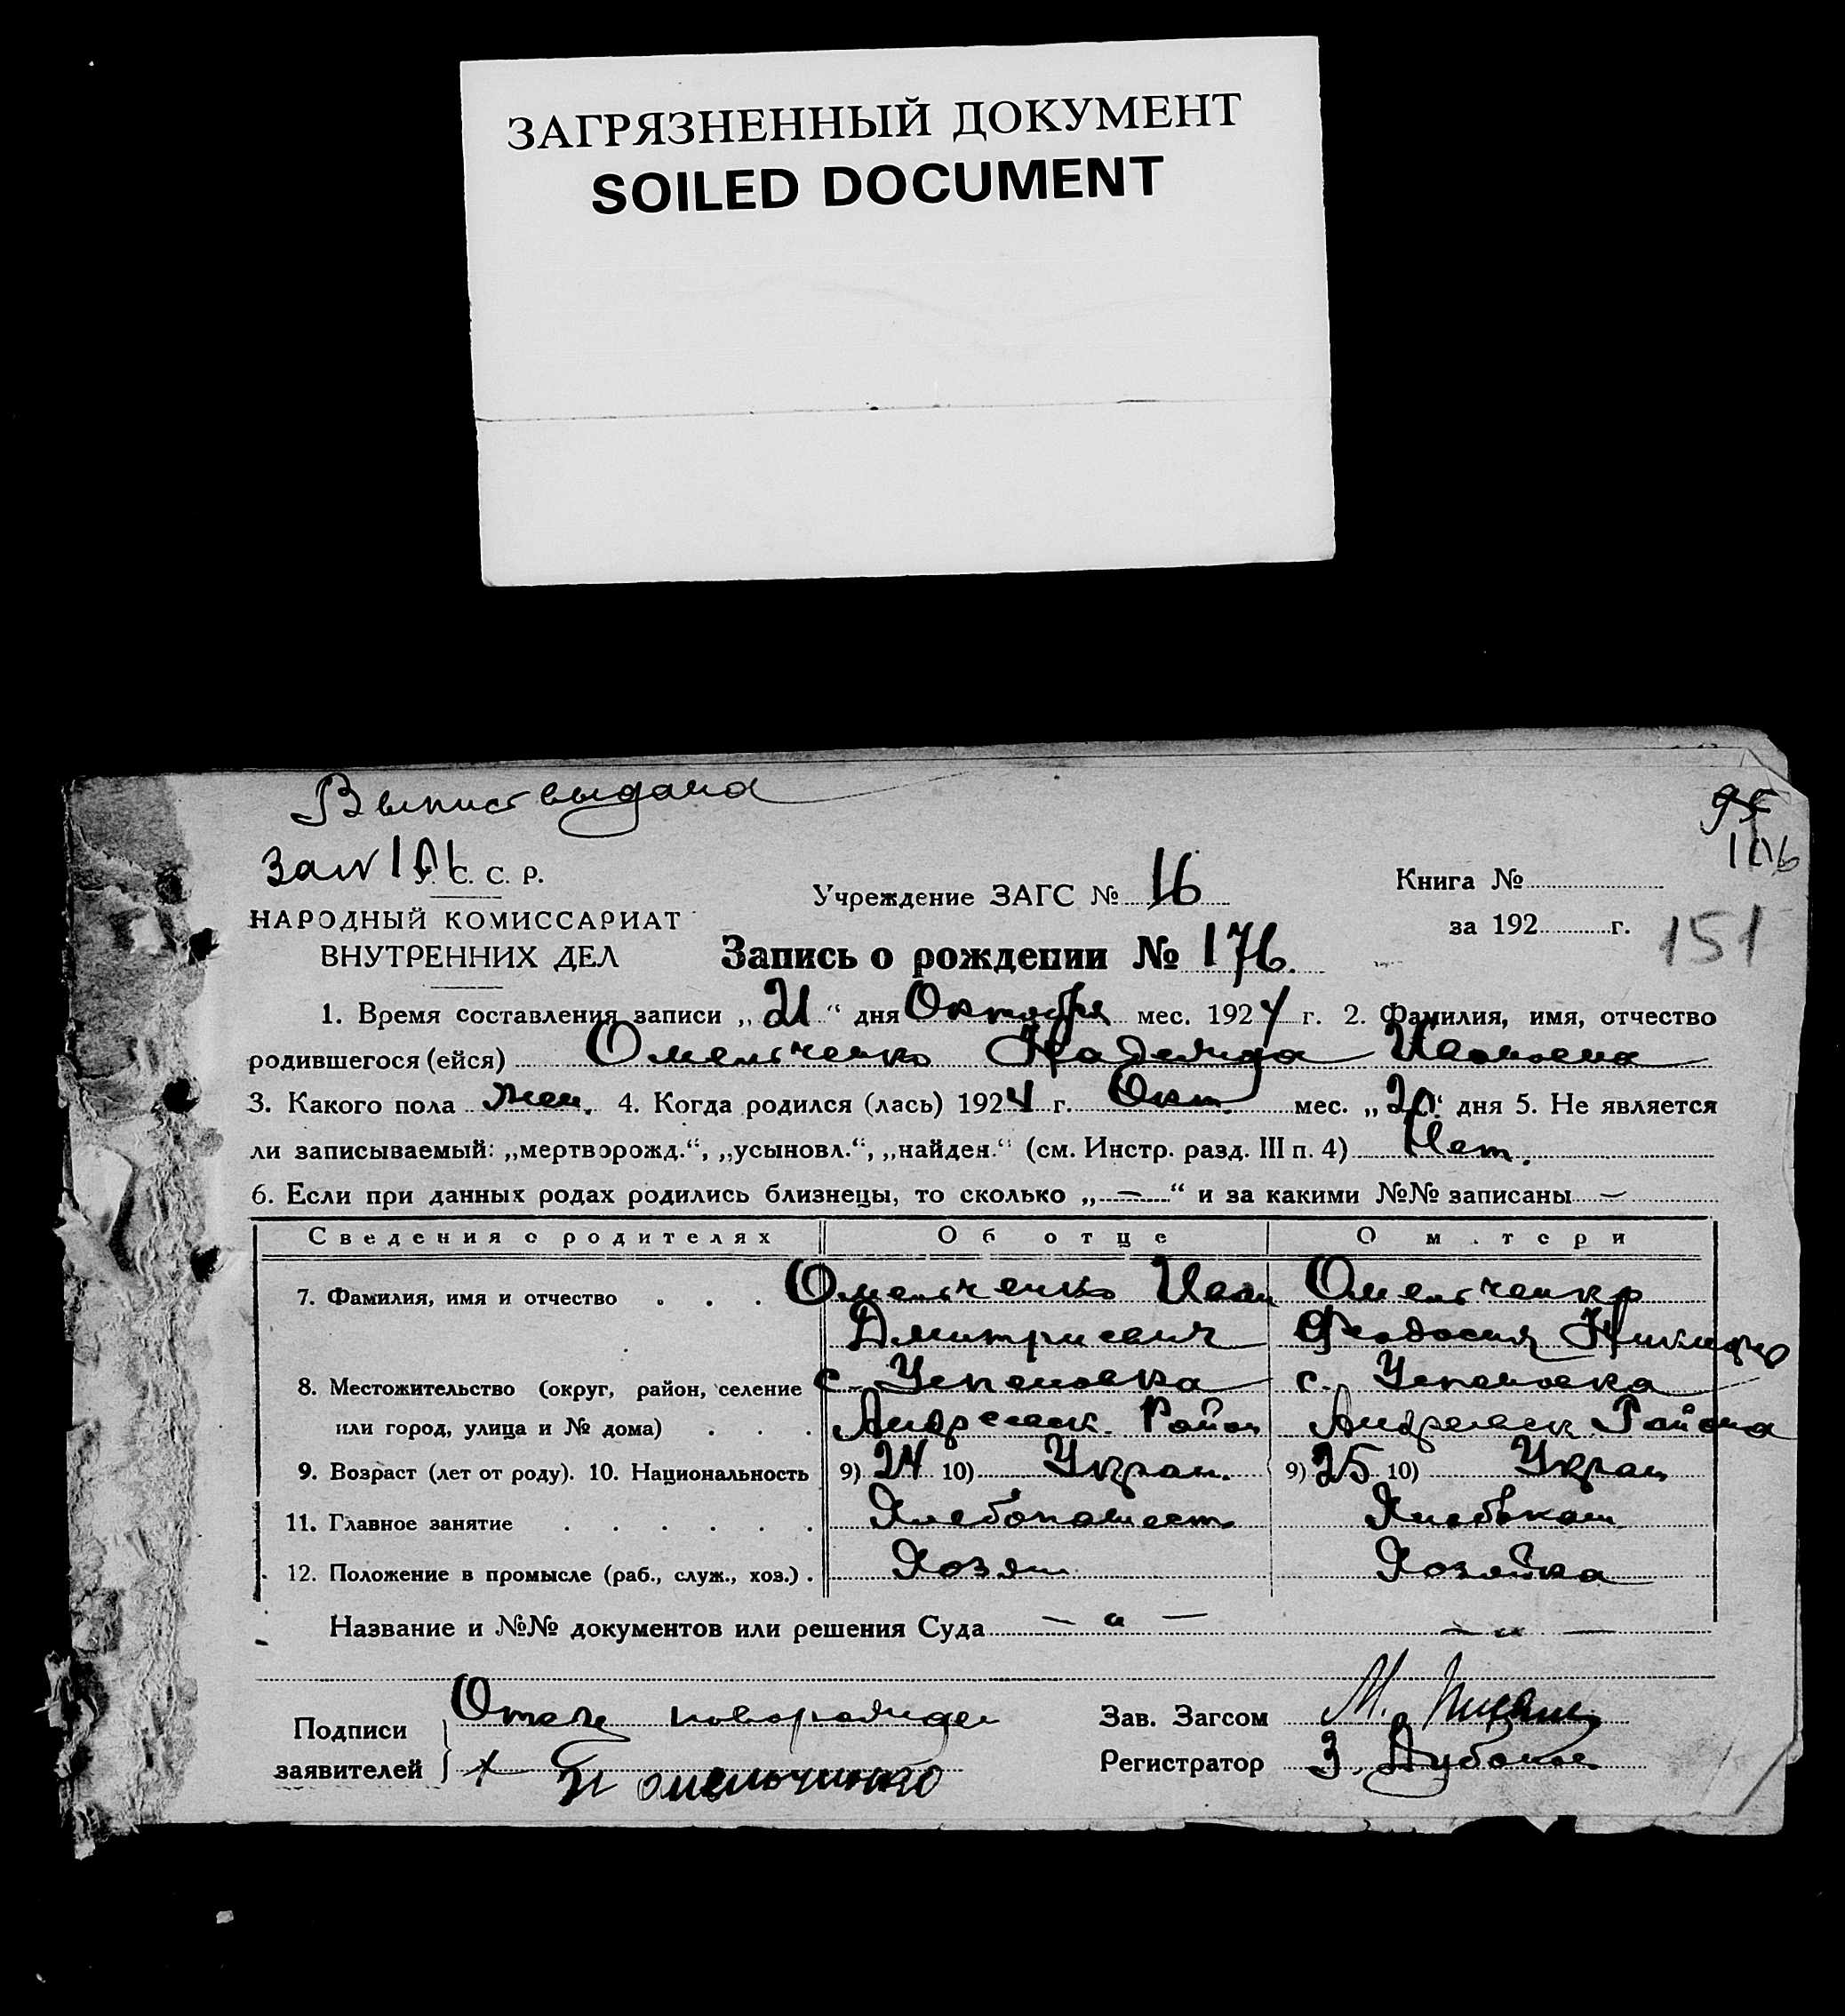 ЗАГРЯЗНЕННЫЙ ДОКУМЕНТ
SOILED DOCUMENT
95
106
С. С. Р.
Учреждение ЗАГС № 16
Книга №
НАРОДНЫЙ КОМИССАРИАТ
за 192 г.
151
ВНУТРЕННИХ ДЕЛ
Запись о рождении № 176.
1. Время составления записи „21“ дня Октября мес. 1924 г. 2. Фамилия, имя, отчество
родившегося (ейся) Омельченко Надежда Ивановна
3. Какого пола жен. 4. Когда родился (лась) 1924 г. Окт. мес. „20“ дня 5. Не является
ли записываемый: „мертворожд.“, „усыновл.“, „найден.“ (см. Инстр. разд. III п. 4) Нет.
6. Если при данных родах родились близнецы, то сколько „—“ и за какими №№ записаны —
Сведения о родителях Об отце О матери
7. Фамилия, имя и отчество . . . Омельченко Иван Омельченко
Дмитриевич Феодосия
8. Местожительство (округ, район, селение с. Успеновка с. Успеновка
или город, улица и № дома) . . . Андреевск. Район Андреевск Района
9. Возраст (лет от роду). 10. Национальность 9) 24 10) Украин. 9) 25 10) Украин
11. Главное занятие . . . . . . Хлебопашест. Хлебопаш
12. Положение в промысле (раб., служ., хоз.) . Хозяин Хозяйка
Название и №№ документов или решения Суда — „ — — „ —
Подписи Отец новорожден Зав. Загсом М.
заявителей + И омельчинко Регистратор З.